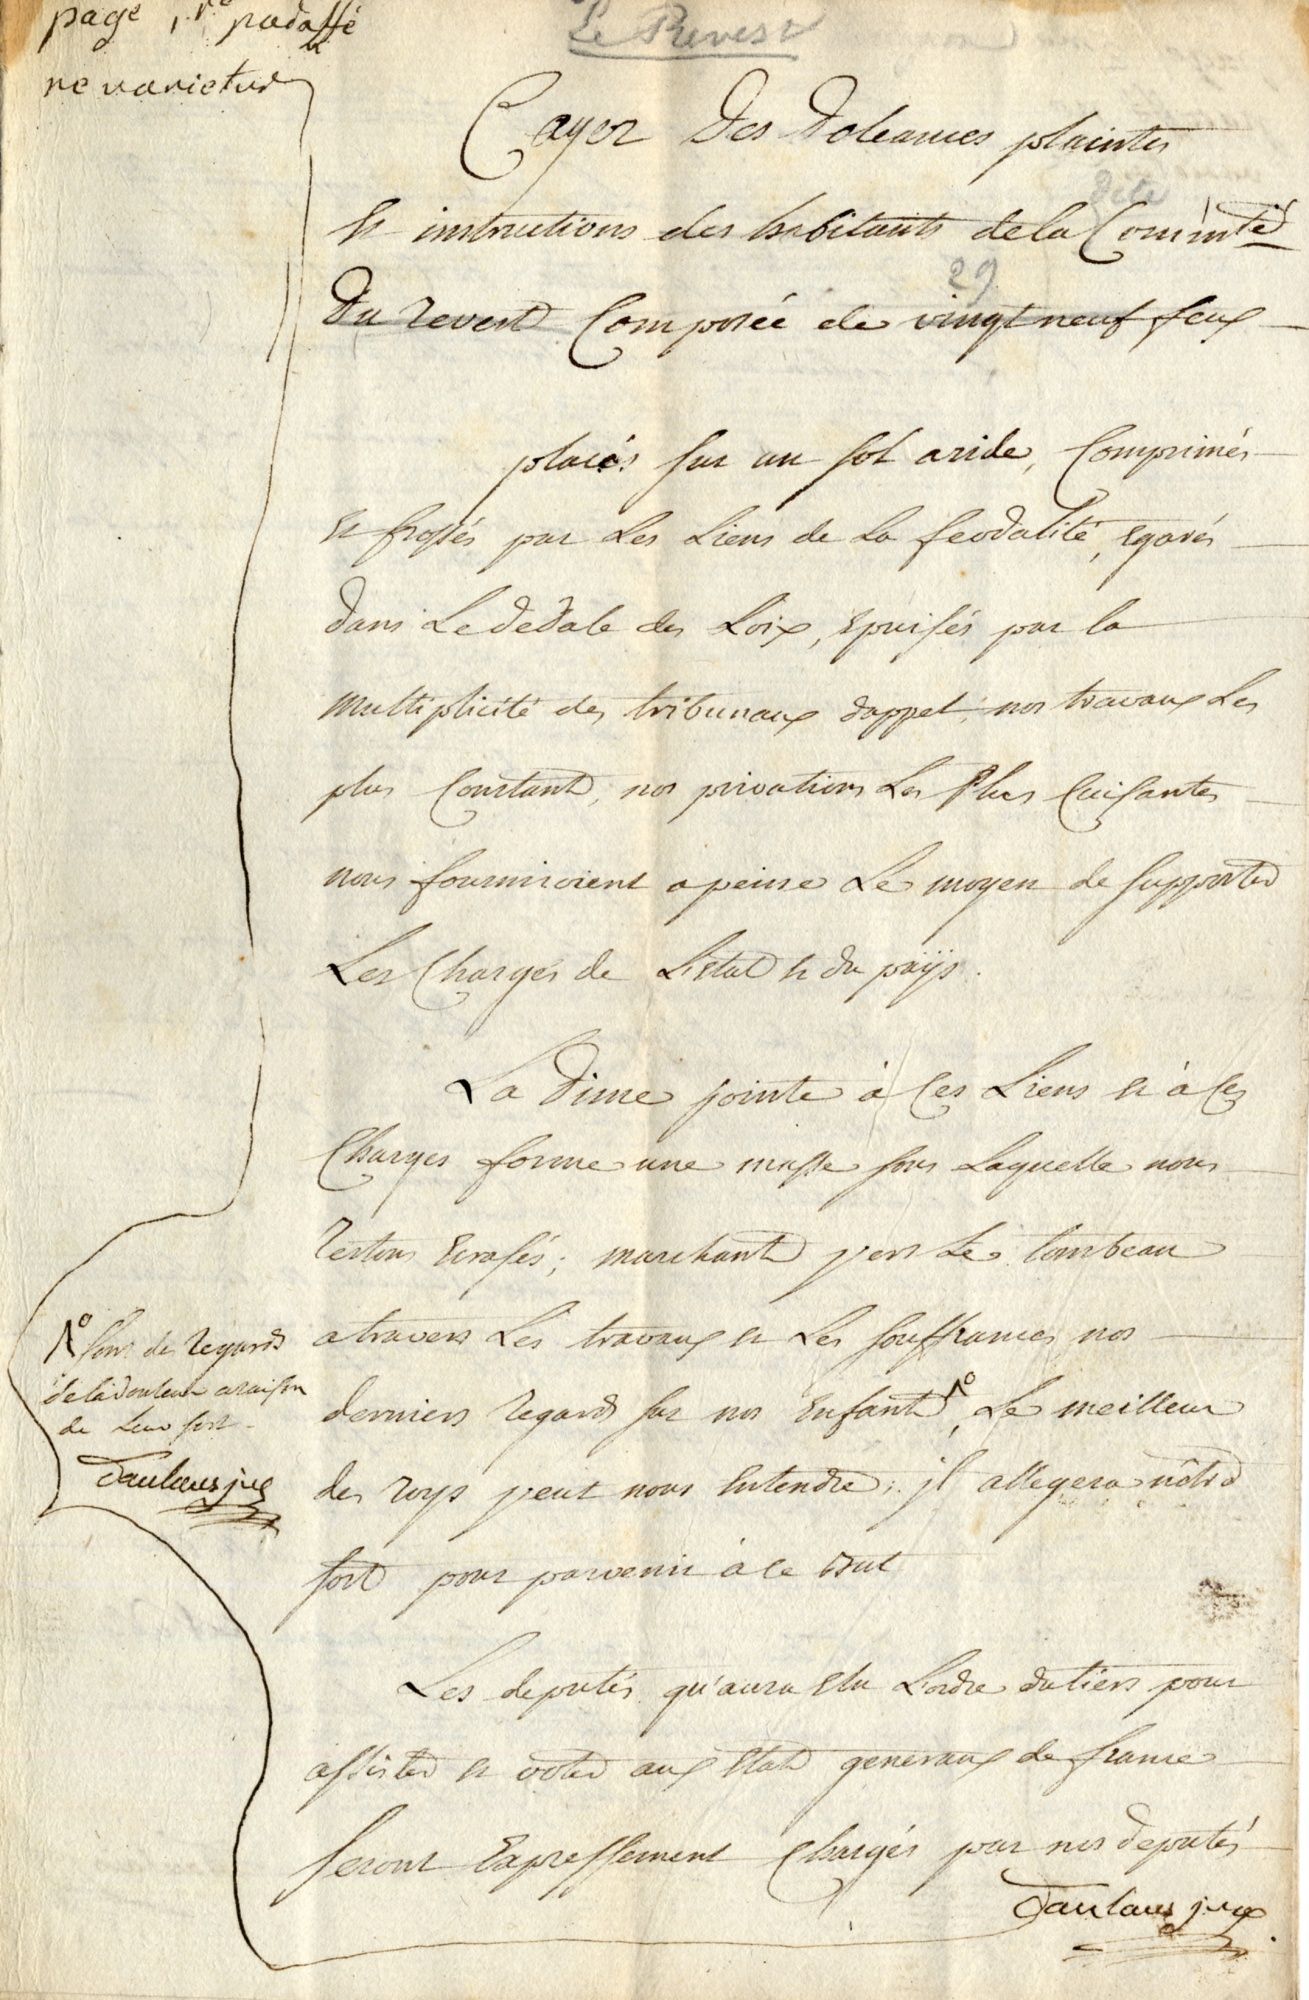 page 1re paraffé
ne varietur
Le Revest
Cayer des doleances plaintes
et instructions des habitants de la Comm̃té
dite
29
du revest Composée de vingt neuf feux
placés sur un sol aride, Comprimés
et froissés par les Liens de la feodalité, egarés
dans Le dedale des Loix, epuisés par la
multiplicité des tribunaux d'appel, nos travaux Les
plus Constants, nos privations Les Plus Cuisantes
nous fourniroient a peine Le moyen de supporter
Les Charges de L'etat et du païjs.
La dime jointe à Ces Liens et à Ces
Charges forme une masse sous Laquelle nous
restons ecrasés; marchant vers Le tombeau
a travers Les travaux et Les souffrances nos
derniers regards sur nos enfants 1º, Le meilleur
des roys peut nous entendre; il allegera nôtre
sort pour parvenir à ce but
1º sont des regards
de la douleur a raison
de Leur sort
Les deputés qu'aura elu L'ordre du tiers pour
assister et voter aux etats generaux de france
seront expressement Chargés par nos deputés